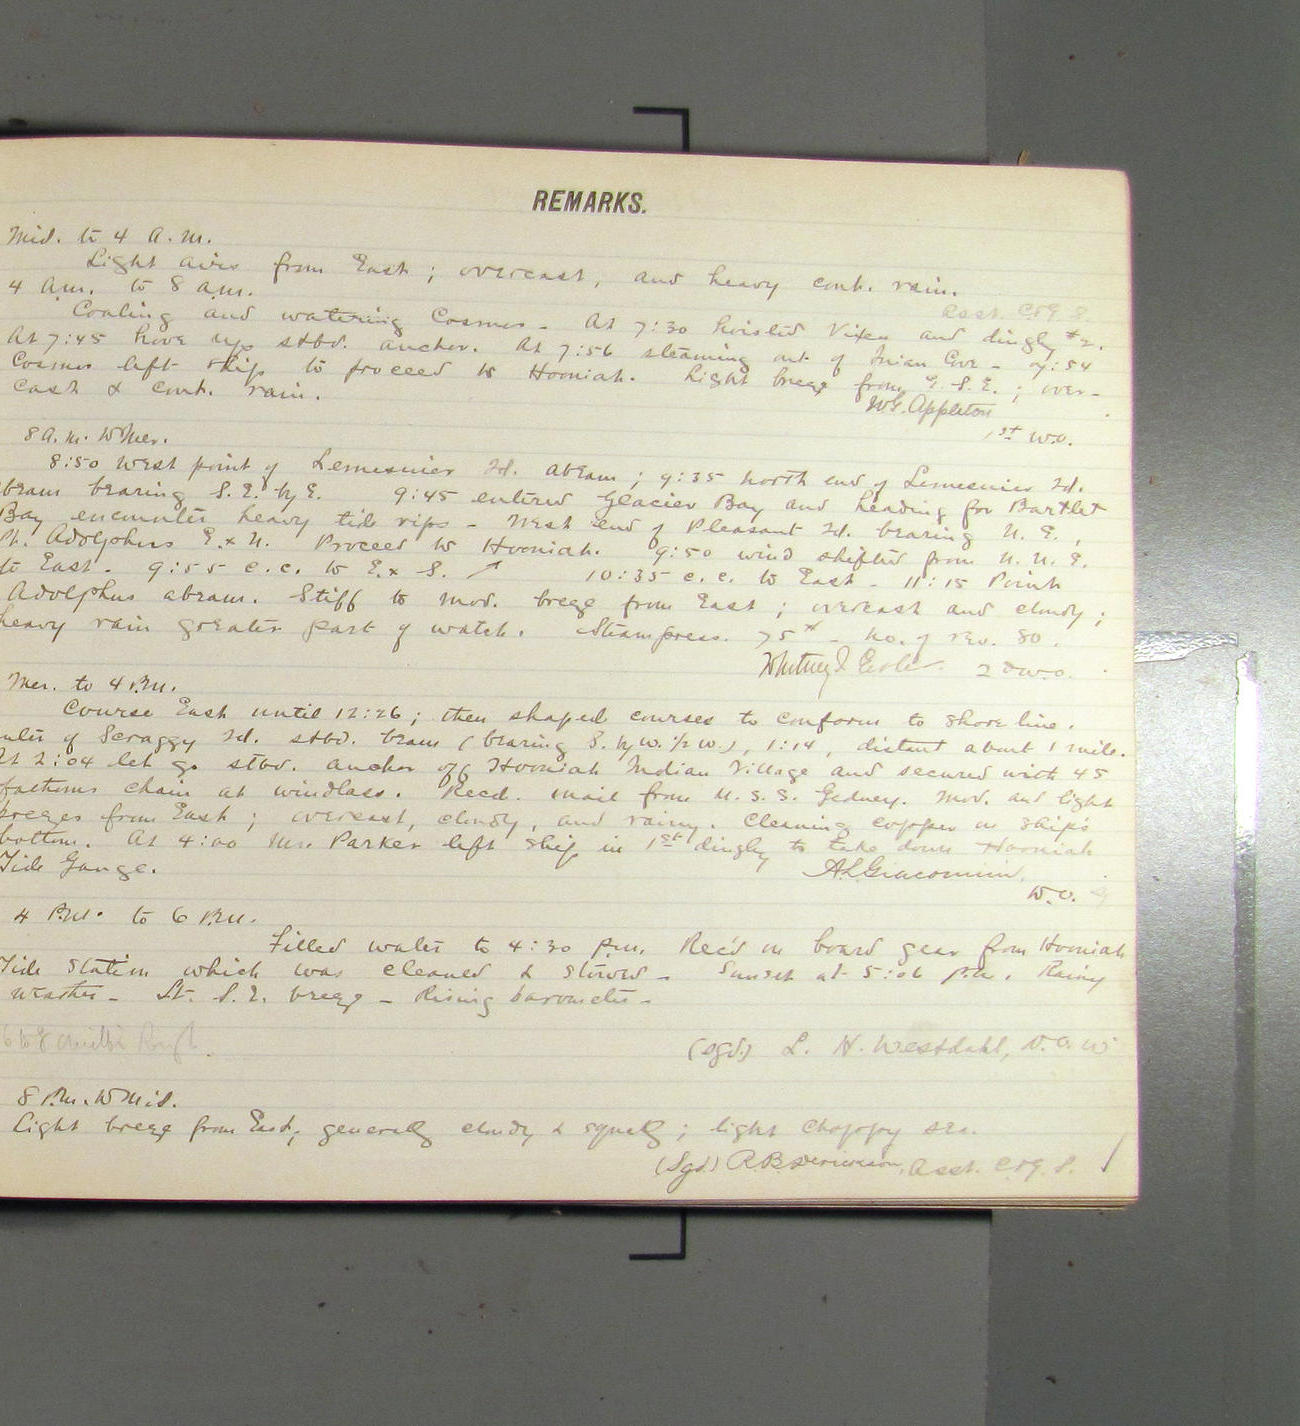 REMARKS.
Mid. to 4 A.M.
Light airs from East; overcast, and heavy cont. rain.
Asst. C&G S.
4 a.m. to 8 a.m.
Coaling and watering Cosmos - At 7:30 hoisted Vixen and dinghy #2.
At 7:45 hove up stbd. anchor. At 7:56 steaming out of Inian Cove - 7:54
Cosmos left ship to proceed to Hooniah. Light breeze from E.S.E.; over-
cast & cont. rain.
W.G. Appleton
1st W.O.
8 A.M. to Mer.
8:50 West point of Lemesurier Id. abeam; 9:35 north end of Lemesurier Id.
abeam bearing S.E. by E. 9:45 entered Glacier Bay and heading for Bartlet
Bay encounter heavy tide rips - West end of Pleasant Id. bearing N.E.,
Pt. Adolphus E. x N. Proceed to Hooniah. 9:50 wind shifted from N.N.E.
to East. 9:55 c.c. to E. x S. 10:35 c.c. to East - 11:15 Point
Adolphus abeam. Stiff to mod. breeze from East; overcast and cloudy;
heavy rain greater part of watch. Steam press. 75# - No. of rev. 80.
Whitney I. 2d W.O.
Mer. to 4 P.M.
Course East until 12:26; then shaped courses to conform to shore line.
of Scraggy Id. stbd. beam (bearing S. by W. 1/2 W.), 1:14, distant about 1 mile.
At 2:04 let go stbd. anchor off Hooniah Indian Village and secured with 45
fathoms chain at windlass. Recd. mail from U.S.S. Gedney. Mod. and light
breezes from East; overcast, cloudy, and rainy. Cleaning copper on ship's
bottom. At 4:00 Mr. Parker left ship in 1st dinghy to take down Hooniah
Tide Gauge.
A.L. Giacomini,
W.O.
4 P.M. to 6 P.M.
Filled water to 4:30 p.m. Rec'd on board gear from Hooniah
Tide Station which was cleaned & stowed - Sunset at 5:06 p.m. Rainy
weather - Lt. S.E. breeze - Rising barometer -
6 to 8
(sgd.) L. H. Westdahl, D.O.W
8 P.M. to Mid.
Light breeze from East; generally cloudy & squally; light choppy sea.
(Sgd) R.B. Derickson, Asst. C&G. S.